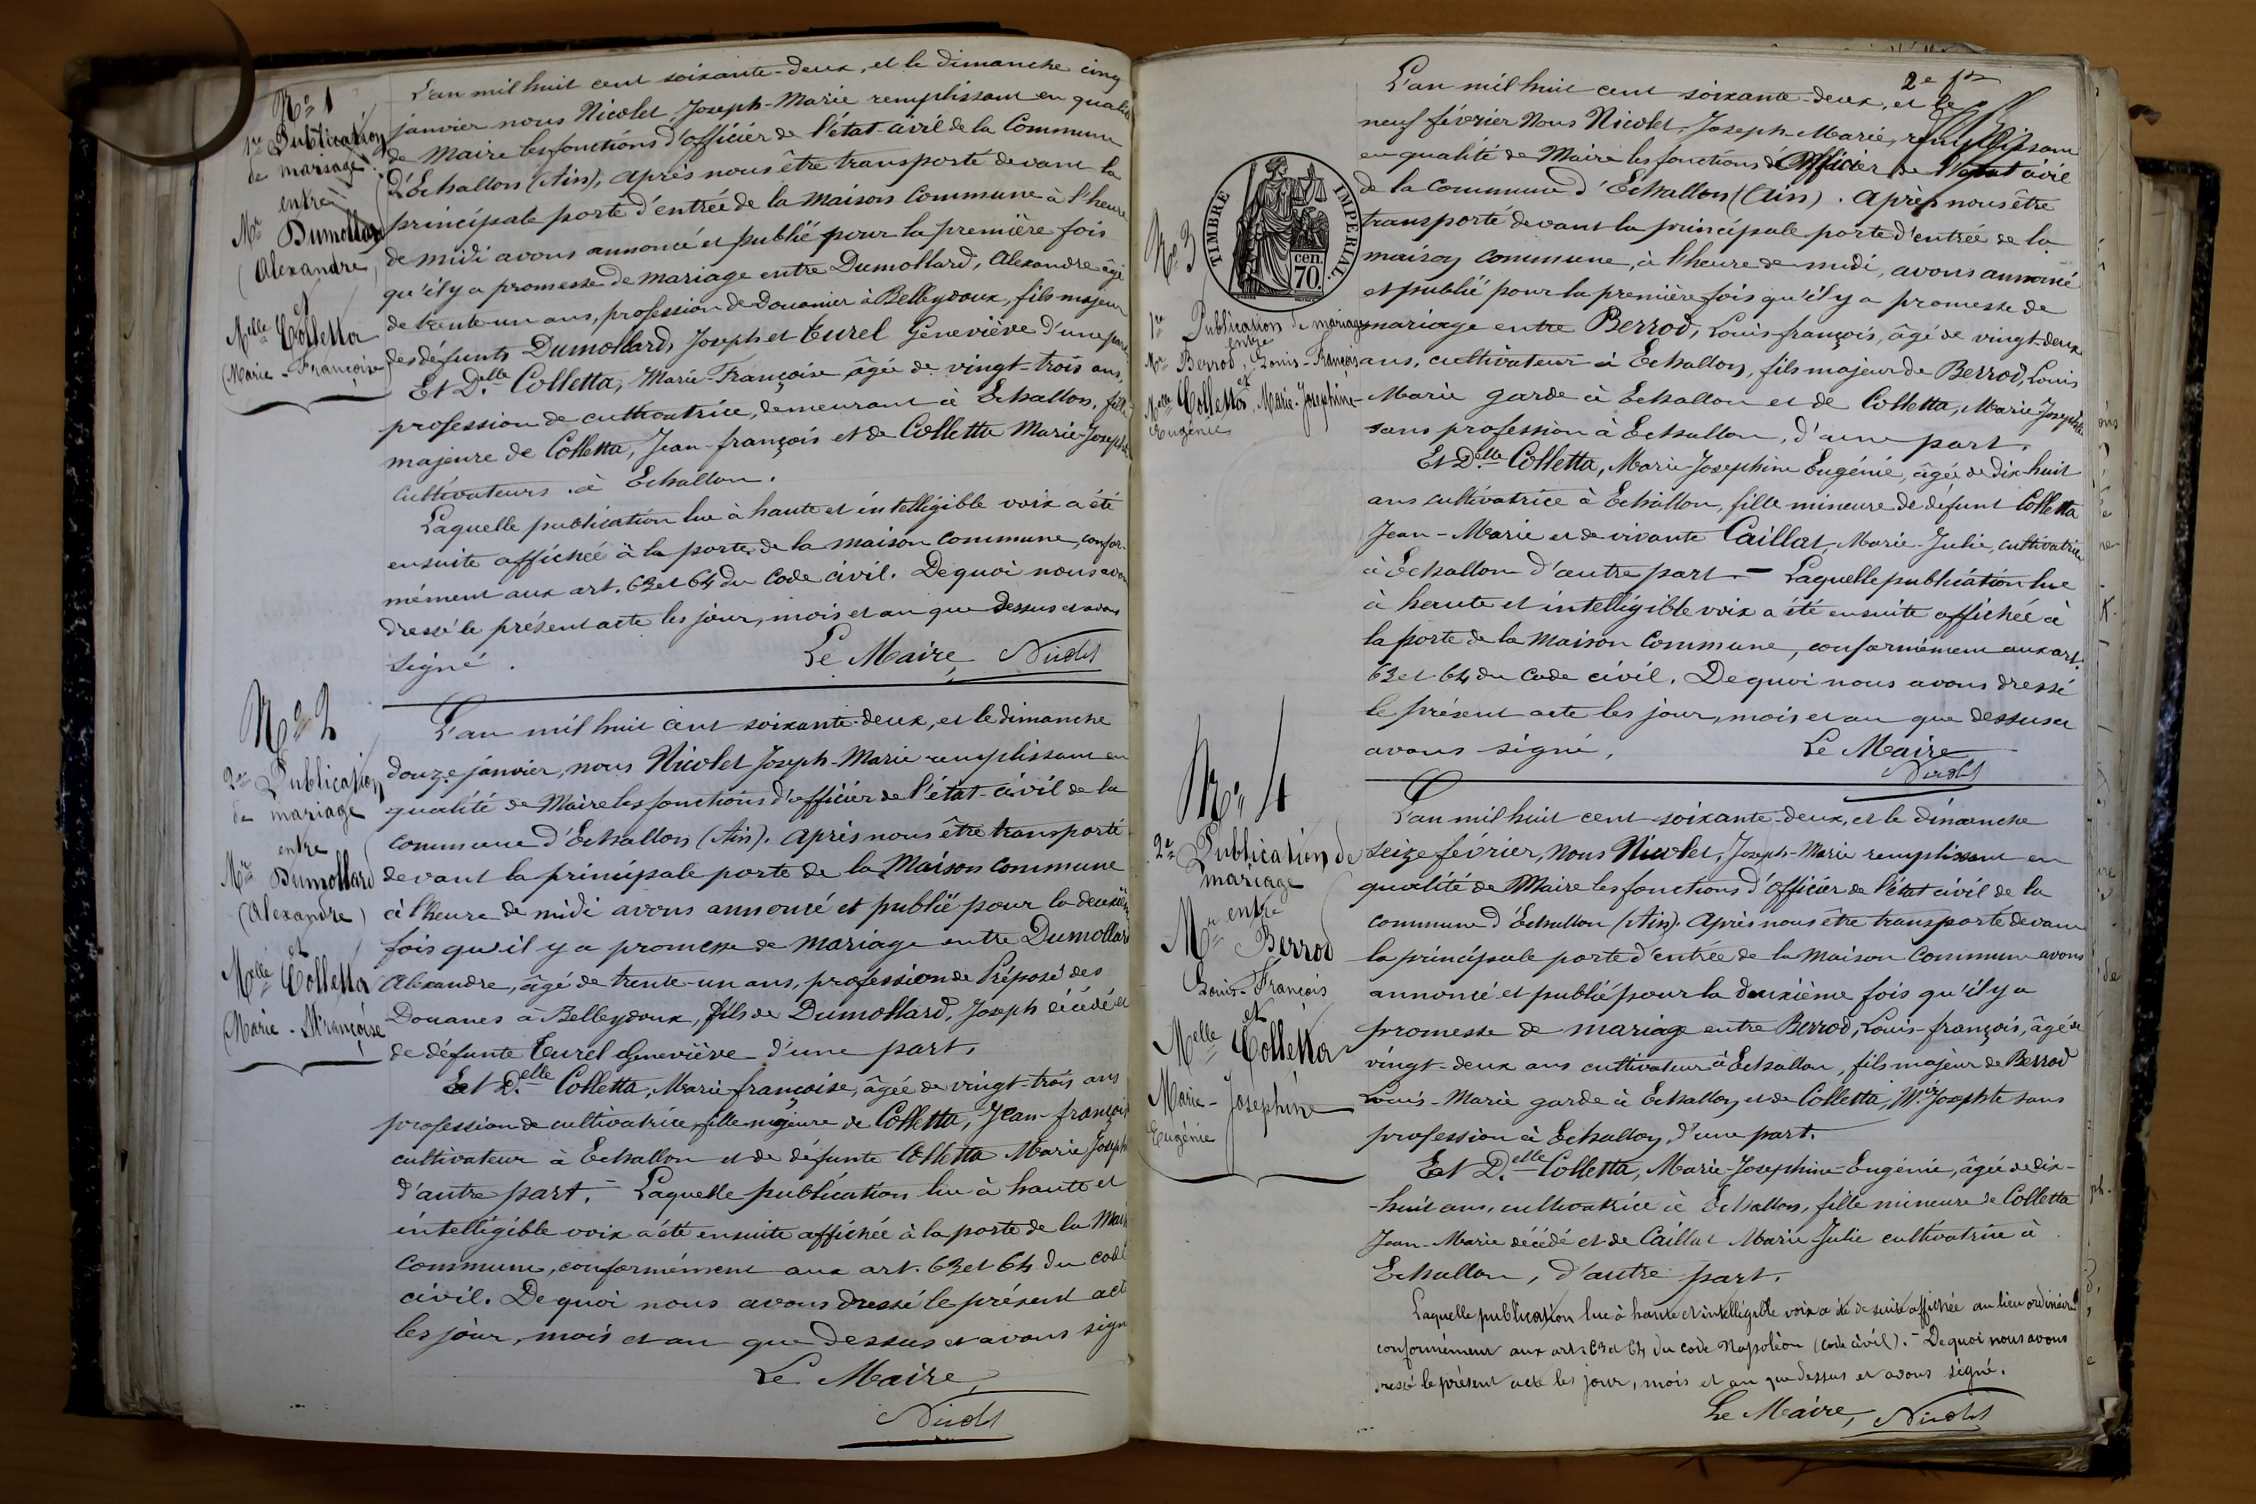 Nº 1
1re Publication
de mariage
entre
Mr Dumollard
(Alexandre)
et
Melle Colletta
(Marie-Françoise)
L'an mil huit cent soixante-deux, et le dimanche cinq
janvier nous Nicolet, Joseph-Marie remplissant en qualité
de Maire les fonctions d'officier de l'état-civil de la Commune
d'Echallon (Ain), après nous être transporté devant la
principale porte d'entrée de la Maison Commune à l'heure
de midi avons annoncé et publié pour la première fois
qu'il y a promesse de mariage entre Dumollard, Alexandre âgé
de trente-un ans, profession de douanier à Belleydoux, fils majeur
des défunts Dumollard, Joseph et Eurel Geneviève d'une part
Et Delle Colletta, Marie-Françoise âgée de vingt-trois ans,
profession de cultivatrice, demeurant à Echallon, fille
majeure de Colletta, Jean-françois et de Colletta Marie Josephte
cultivateurs à Echallon.
Laquelle publication lue à haute et intelligible voix a été
ensuite affichée à la porte de la maison commune, confor-
mément aux art. 63 et 64 du Code civil. De quoi nous avons
dressé le présent acte les jour, mois et an que dessus et avons
signé.
Le Maire, Nicolet
Nº 2
2e Publication
de mariage
entre
Mr Dumollard
(Alexandre)
et
Melle Colletta
(Marie-Françoise
L'an mil huit cent soixante-deux, et le dimanche
douze janvier, nous Nicolet Joseph-Marie remplissant en
qualité de Maire les fonctions d'officier de l'état-civil de la
commune d'Echallon (Ain). Après nous être transporté
devant la principale porte de la Maison commune
à l'heure de midi avons annoncé et publié pour la deuxième
fois qu'il y a promesse de mariage entre Dumollard
Alexandre, âgé de trente-un ans, profession de Préposé des
Douanes à Belleydoux, fils de Dumollard, Joseph décédé et
de défunte Eurel Geneviève d'une part.
Et Delle Colletta, Marie-françoise, âgée de vingt-trois ans
profession de cultivatrice, fille majeure de Colletta, Jean-françois
cultivateur à Echallon et de défunte Colletta Marie Josephte
d'autre part. - Laquelle publication lue à haute et
intelligible voix a été ensuite affichée à la porte de la Maison
Commune, conformément aux art. 63 et 64 du code
civil. De quoi nous avons dressé le présent acte
les jour, mois et an que dessus et avons signé
Le Maire,
Nicolet
2e
TIMBRE IMPERIAL.
cen.
70.
Nº 3
1re Publication de mariage
entre
Mr Berrod, Louis-François
et
Melle Colletta, Marie-Josephine
Eugénie
L'an mil huit cent soixante-deux, et le
neuf février Nous Nicolet, Joseph-Marie, remplissant
en qualité de Maire les fonctions d'officier de l'état civil
de la Commune d'Echallon (Ain). Après nous être
transporté devant la principale porte d'entrée de la
maison commune, à l'heure de midi, avons annoncé
et publié pour la première fois qu'il y a promesse de
mariage entre Berrod, Louis françois, âgé de vingt-deux
ans, cultivateur à Echallon, fils majeur de Berrod, Louis
Marie garde à Echallon et de Colletta, Marie Josephte
sans profession à Echallon, d'une part.
Et Delle Colletta, Marie-Josephine Eugénie, âgée de dix huit
ans cultivatrice à Echallon, fille mineure de défunt Colletta
Jean-Marie et de vivante Caillat, Marie-Julie, cultivatrice
à Echallon d'autre part. - Laquelle publication lue
à haute et intelligible voix a été ensuite affichée à
la porte de la Maison Commune, conformément aux art.
63 et 64 du Code civil. De quoi nous avons dressé
le présent acte les jour, mois et an que dessus et
avons signé.
Le Maire
Nicolet
Nº 4
2e Publication de
mariage
entre
Mr Berrod
Louis-François
et
Melle Colletta
Marie-Josephine
Eugénie
L'an mil huit cent soixante-deux, et le dimanche
seize février, Nous Nicolet, Joseph-Marie remplissant en
qualité de Maire les fonctions d'officier de l'état civil de la
commune d'Echallon (Ain). Après nous être transporté devant
la principale porte d'entrée de la Maison Commune avons
annoncé et publié pour la deuxième fois qu'il y a
promesse de mariage entre Berrod, Louis-françois, âgé de
vingt-deux ans cultivateur à Echallon, fils majeur de Berrod
Louis-Marie garde à Echallon et de Colletta, Mie Josephte sans
profession à Echallon, d'une part.
Et Delle Colletta, Marie-Josephine-Eugénie, âgée de dix-
-huit ans, cultivatrice à Echallon, fille mineure de Colletta
Jean-Marie décédé et de Caillat Marie Julie cultivatrice à
Echallon, d'autre part.
Laquelle publication lue à haute et intelligible voix a été de suite affichée au lieu ordinaire
conformément aux art. 63 et 64 du code Napoléon (code civil). - De quoi nous avons
dressé le présent acte les jour, mois et an que dessus et avons signé.
Le Maire, Nicolet